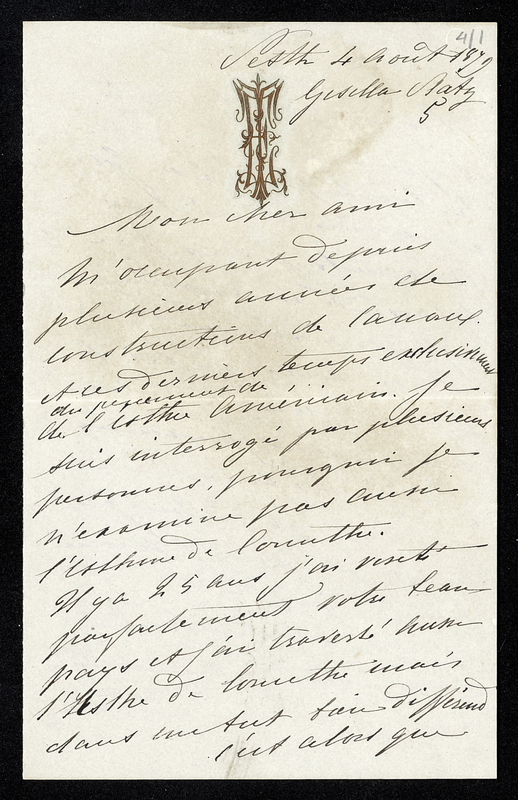 4/1
Pesth 4 Août 1879
Gisella Platz
5
Mon cher ami
M'occupant depuis
plusieurs années de
constructions de canaux.
et ces derniers temps exclusivement
du percement de
de l'Isthe Américain. Je
suis interrogé par plusieurs
personnes, pourquoi je
n'examine pas aussi
l'Isthme de Corinthe.
Il y a 25 ans j'ai visité
parfaitement votre beau
pays et j'ai traversé aussi
l'Isthe de Corinthe mais
dans un but bien différend
c'est alors que